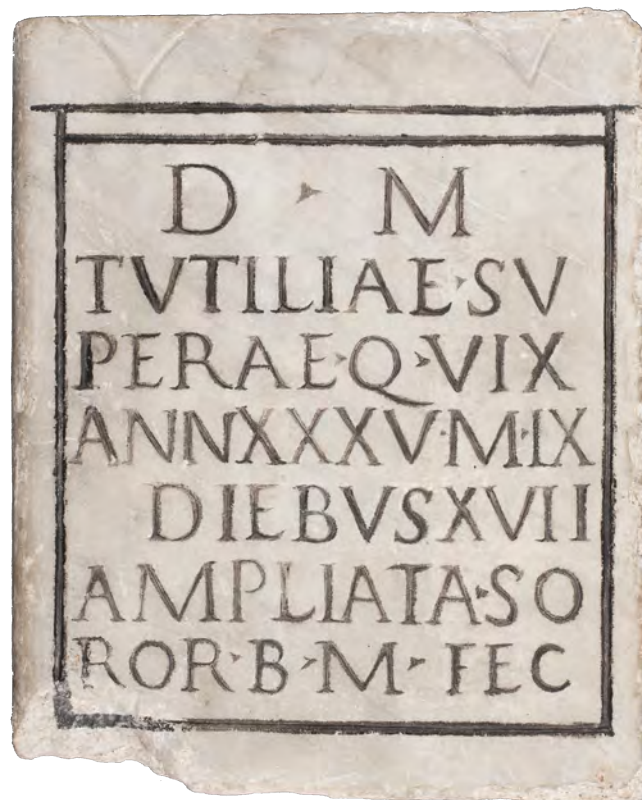 D ‣ M
TVTILIAE‣SV
PERAE‣Q‣VIX
ANNXXXV‣M‣IX
DIEBVSXVII
AMPLIATA‣SO
ROR‣B‣M‣FEC